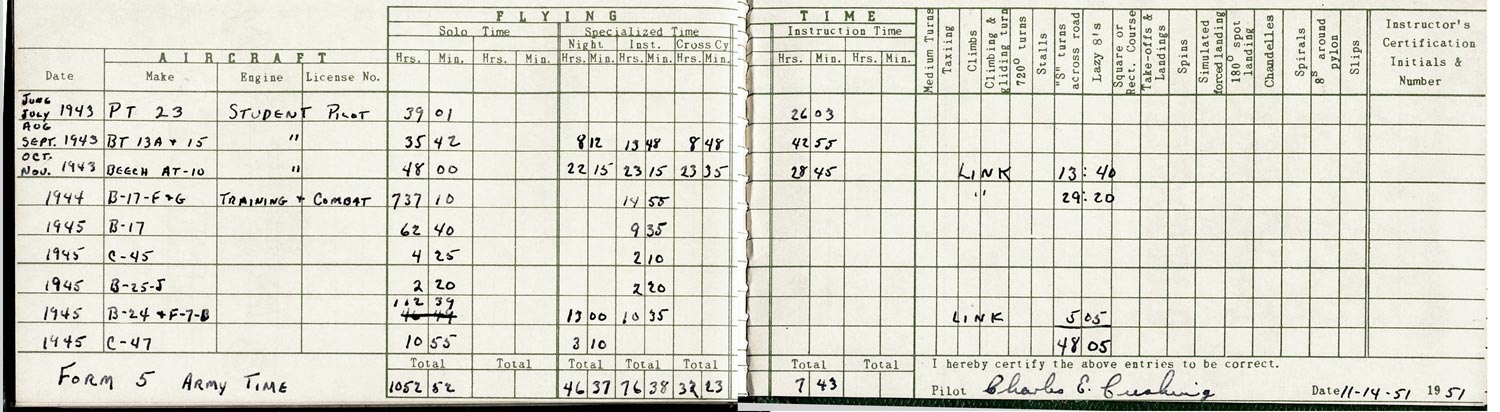 FLYING TIME
Solo Time Specialized Time Instruction Time
Night Inst. Cross Cy
AIRCRAFT
Date Make Engine License No. Hrs. Min. Hrs. Min. Hrs. Min. Hrs. Min. Hrs. Min. Hrs. Min. Hrs. Min.
Medium Turns
Taxiing
Climbs
Climbing & gliding turn
720° turns
Stalls
"S" turns across road
Lazy 8's
Square or Rect. Course
Take-offs & Landings
Spins
Simulated forced landing
180° spot landing
Chandelles
Spirals
8s around pylon
Slips
Instructor's
Certification
Initials &
Number
JUNE
JULY 1943 PT 23 STUDENT PILOT 39 01 26 03
AUG
SEPT. 1943 BT 13A + 15 " 35 42 8 12 13 48 8 48 42 55
OCT.
NOV. 1943 BEECH AT-10 " 48 00 22 15 23 15 23 35 28 45 LINK 13:40
1944 B-17-F+G TRAINING + COMBAT 737 10 14 55 " 29:20
1945 B-17 62 40 9 35
1945 C-45 4 25 2 10
1945 B-25-J 2 20 2 20
112 39
1945 B-24 + F-7-B 13 00 10 35 LINK 5 05
1945 C-47 10 55 3 10 48 05
Total Total Total Total Total Total Total
I hereby certify the above entries to be correct.
FORM 5 ARMY TIME 1052 52 46 37 76 38 32 23 7 43
Pilot Charles E. Cushing Date 11-14-51 1951